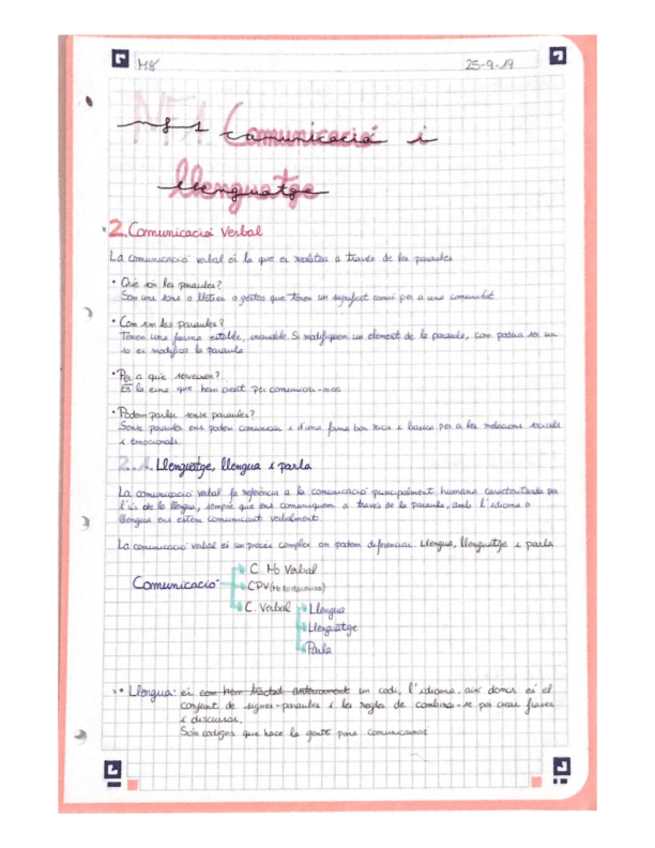 M8
25-9-19
NF1 Comunicació i
llenguatge
2. Comunicació Verbal
La comunicació verbal és la que es realitza a través de les paraules
· Què són les paraules?
Són uns sons o lletres o gestos que tenen un significat comú per a una comunitat
· Com són les paraules?
Tenen una forma estable, invariable. Si modifiquem un element de la paraula, com passa un
so es modifica la paraula
· Per a què serveixen?
És la eina que hem creat per comunicar-nos
· Podem parlar sense paraules?
Sense paraules ens podem comunicar i d'una forma ben rica i bàsica per a les relacions socials
i emocionals.
2.1. Llenguatge, llengua i parla
La comunicació verbal fa referència a la comunicació principalment humana caracteritzada per
l'ús de la llengua, sempre que ens comuniquem a través de la paraula, amb l'idioma o
llengua ens estem comunicant verbalment.
La comunicació verbal és un procés complex on podem diferenciar: Llengua, llenguatge i parla
Comunicació
C. No Verbal
CPV (No lingüística)
C. Verbal
Llengua
Llenguatge
Parla
· Llengua: és com hem tractat anteriorment un codi, l'idioma, així doncs és el
conjunt de signes-paraules i les regles de combinar-se per crear frases
i discursos.
Són codigos que hace la gente para comunicarnos